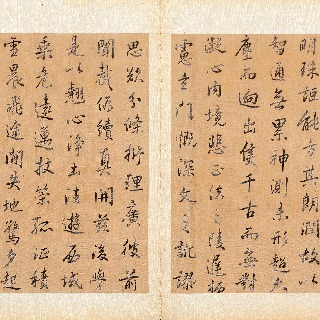 明珠詎能方其朗潤故以
智通無累神測未形超六
塵而迥出隻千古而無對
凝心內境悲正法之陵遲栖
慮玄門慨深文之訛謬
思欲分條析理廣彼前
聞截偽續真開茲後學
是以翹心淨土法遊西域
乘危遠邁杖策孤征積
雪晨飛途閒失地驚夕起